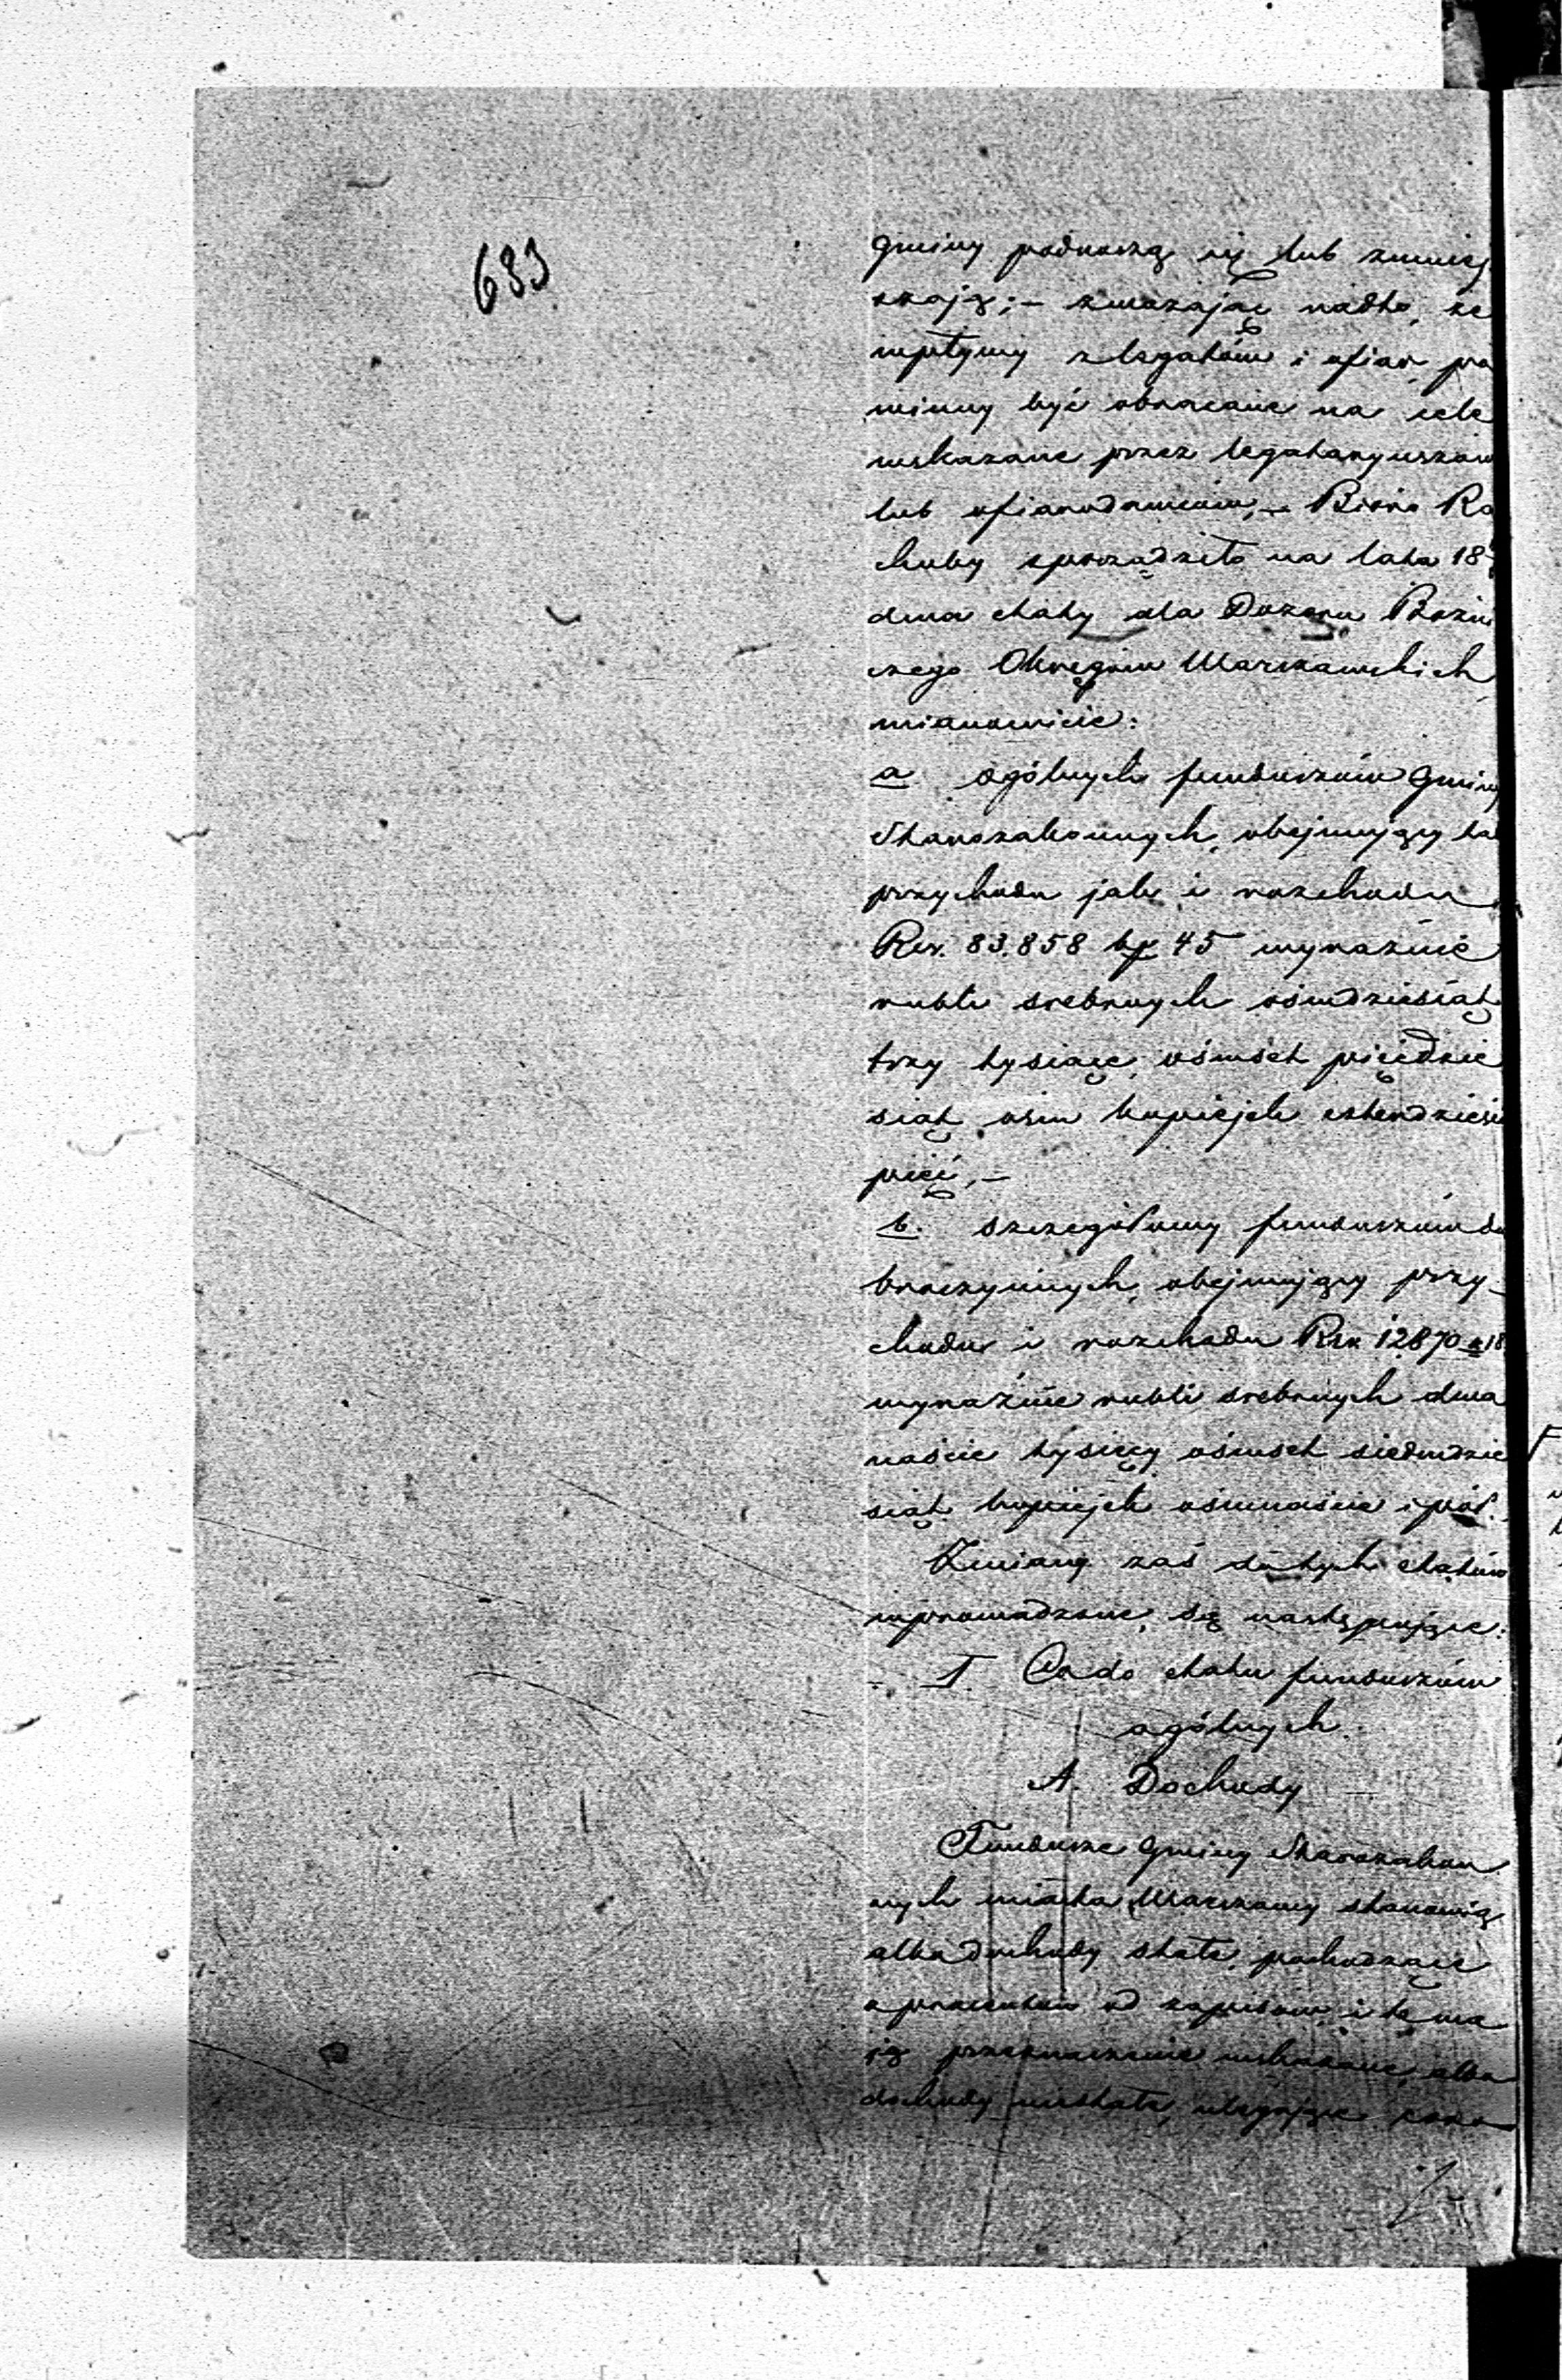 683
gminy podnoszą się lub zmniej
szają; – zważając nadto, że
wpływy z legatów i ofiar, po
winny być obracane na cele
wskazane przez legataryuszów
lub ofiarodawców; – Biuro Ra
chuby sporządziło na lata 18
dwa etaty dla Dozoru Bożni
czego Okręgów Warszawskich,
mianowicie:
a ogólnych funduszów Gminy
Starozakonnych, obejmujący tak
przychodu jak i rozchodu
Rsr. 83.858 kp 45 wyraźnie
rubli srebrnych ośmdziesiąt
trzy tysiące, ośmset pięćdzie
siąt osm kopiejek czterdzieści
pięć, –
b. szczegółowy funduszów do
broczynnych, obejmujący przy-
chodu i rozchodu Rsr 12.870 k 18
wyraźnie rubli srebrnych dwa
naście tysięcy ośmset siedmdzie
siąt kopiejek ośmnaście i pół.
Zmiany zaś do tych etatów
wprowadzone, są następujące:
I. Co do etatu funduszów
ogólnych.
A. Dochody
Fundusze Gminy Starozakon
nych miasta Warszawy stanowią
albo dochody stałe, pochodzące
z procentów od zapisów, i te ma
ją przeznaczenie wskazane, albo
dochody niestałe, ulegające